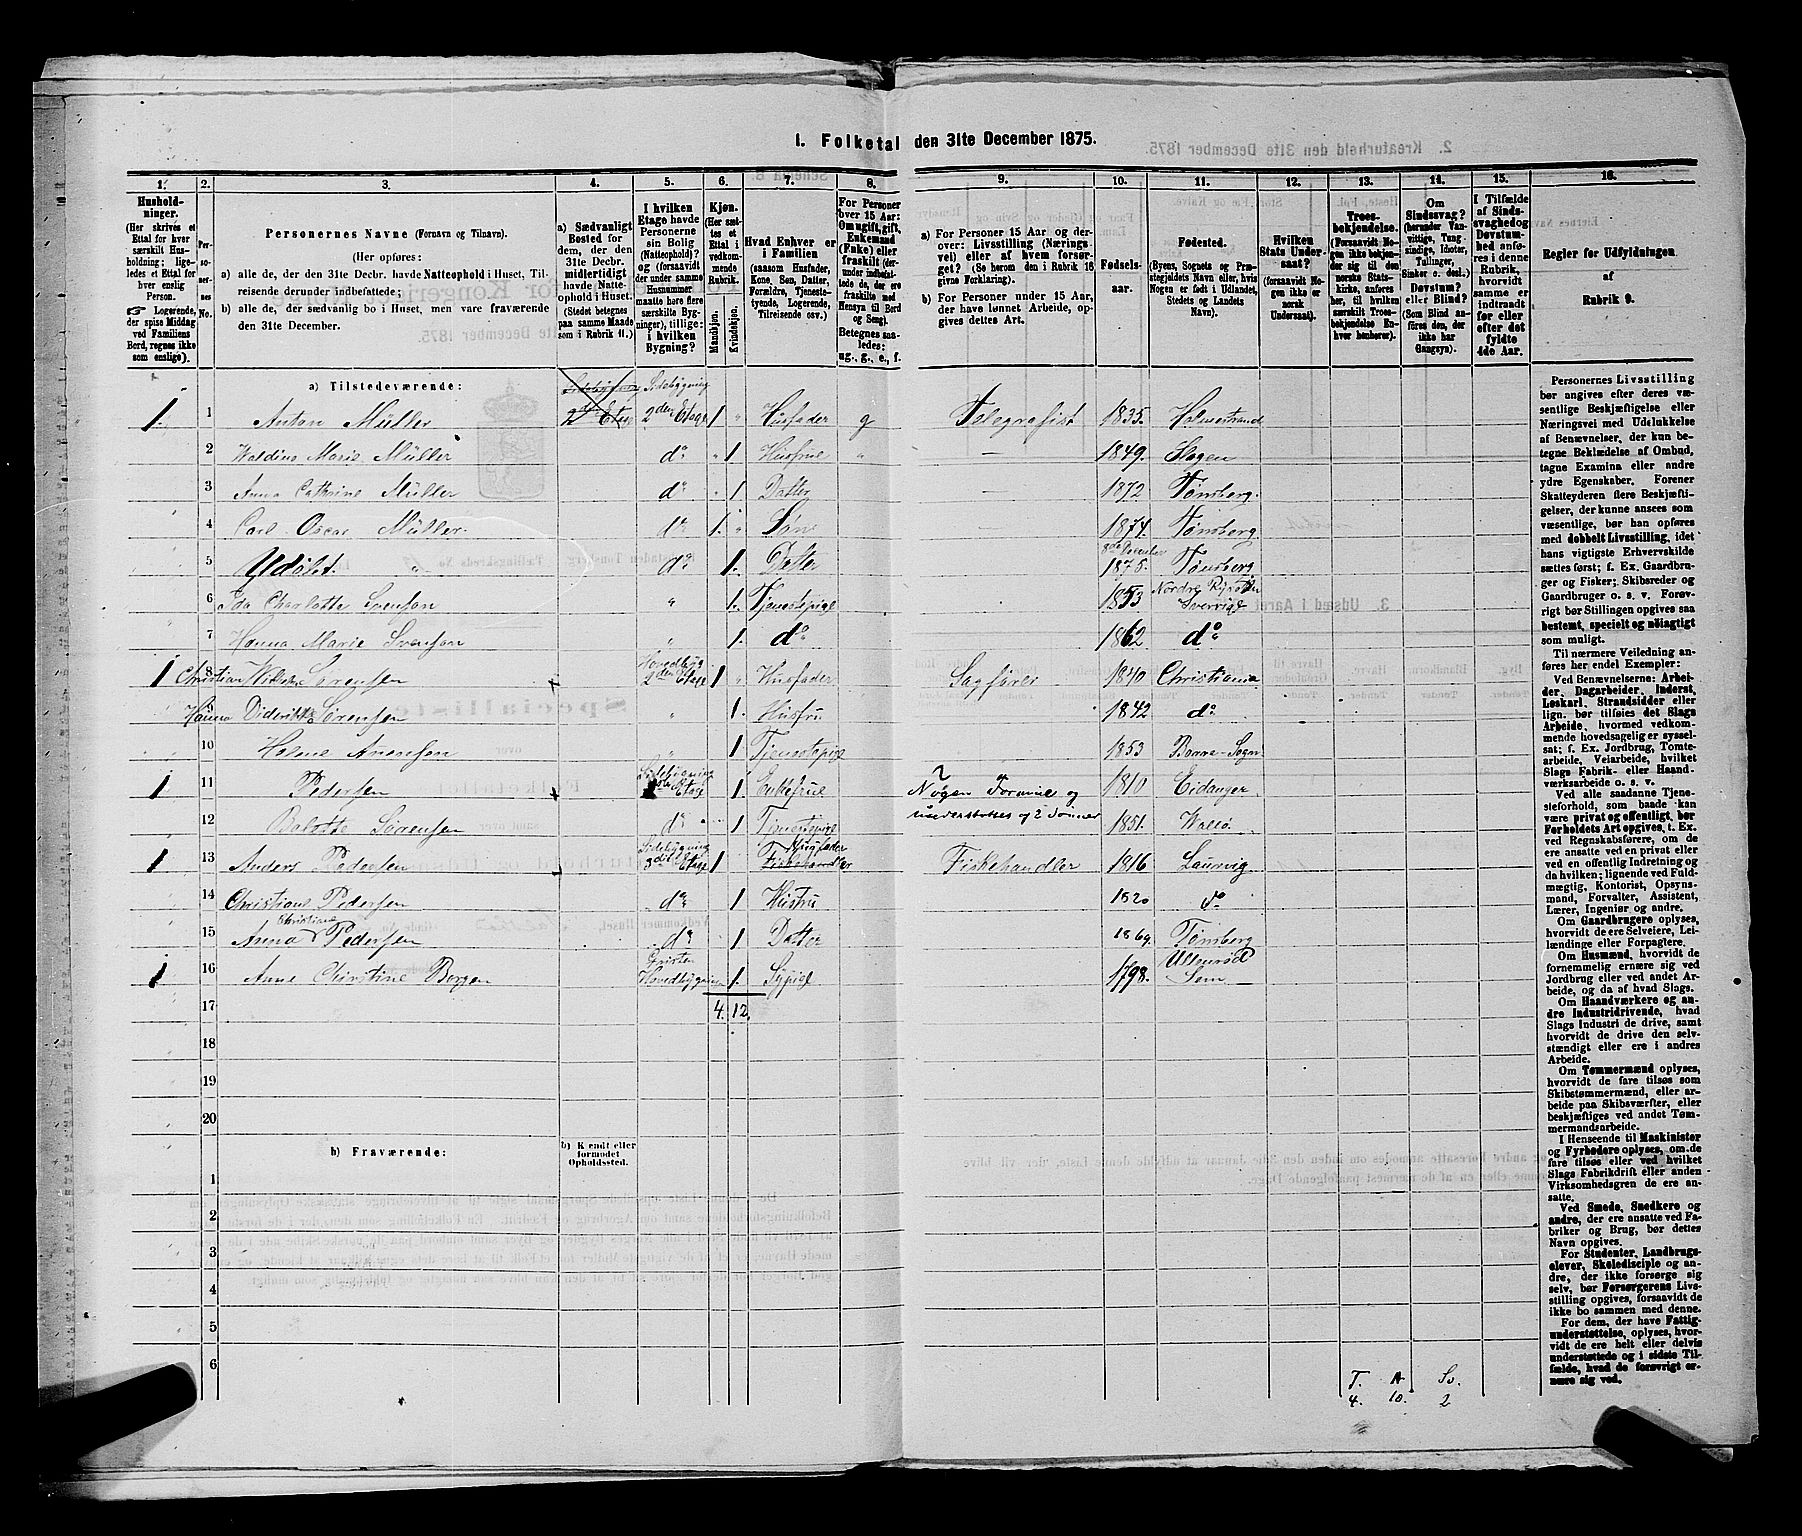 1. Folketal den 31te December 1875.
1.
Hushold-
ninger.
(Her skrives et
Ettal for hver
særskilt Hus-
holdning; lige-
ledes et Ettal for
hver enslig
Person.
☞ Logerende,
der spise Middag
ved Familiens
Bord, regnes ikke
som enslige).
2.
Per-
so-
ner-
nes
No.
3.
Personernes Navne (Fornavn og Tilnavn).
(Her opføres:
a) alle de, der den 31te Decbr. havde Natteophold i Huset, Til-
reisende derunder indbefattede;
b) alle de, der sædvanlig bo i Huset, men vare fraværende
den 31te December.
4.
a) Sædvanligt
Bosted for
dem, der den
31te Decbr.
midlertidigt
havde Natte-
ophold i Huset.
(Stedet betegnes
paa samme Maade
som i Rubrik 11.)
5.
I hvilken
Etage havde
Personerne
sin Bolig
(Natteophold)?
og (forsaavidt
der under samme
Husnummer
maatte høre flere
særskilte Byg-
ninger), tillige:
i hvilken
Bygning?
6.
Kjøn.
(Her sæt-
tes et
Ettal i
vedkom-
mende
Rubrik.
Mandkjøn.
Kvindekjøn.
7.
Hvad Enhver er
i Familien
(saasom Husfader,
Kone, Søn, Datter,
Forældre, Tjeneste-
tyende, Logerende,
Tilreisende osv.)
8.
For Personer
over 15 Aar:
Om ugift, gift,
Enkemand
(Enke) eller
fraskilt (der-
under indbefat-
tede de, der ere
fraskilte med
Hensyn til Bord
og Seng).
Betegnes saa-
ledes:
ug., g., e., f.
9.
a) For Personer 15 Aar og der-
over: Livsstilling (Nærings-
vei) eller af hvem forsør-
get? (Se herom den i Rubrik 16
givne Forklaring).
b) For Personer under 15 Aar,
der have lønnet Arbeide, op-
gives dettes Art.
10.
Fødsels-
aar.
11.
Fødested.
(Byens, Sognets og Præ-
stegjeldets Navn eller, hvis
Nogen er født i Udlandet,
Stedets og Landets
Navn).
12.
Hvilken
Stats Under-
saat?
(forsaavidt No-
gen ikke er
norsk
Undersaat).
13.
Troes-
bekjendelse.
(Forsaavidt No-
gen ikke bekjen-
der sig til den
norske Stats-
kirke, anføres
her, til hvilket
særskilt Troes-
bekjendelse En-
hver henhører).
14.
Om
Sindssvag?
(herunder Van-
vittige, Tung-
sindige, Idioter,
Tullinger,
Sinker o. desl.)
Døvstum?
eller Blind?
(Som Blind an-
føres den, der
ikke har
Gangsyn).
15.
I Tilfælde
af Sinds-
svaghed og
Døvstum-
hed anfø-
res i denne
Rubrik,
hvorvidt
samme er
indtraadt
før eller
efter det
fyldte
4de Aar.
16.
Regler for Udfyldningen
af
Rubrik 9.
a) Tilstedeværende:
1. 1 Anton Müller Sidebygning 2den Etage Sidebygning 2den Etage 1 " Husfader g Telegrafist 1835. Holmestrand
2 Waldine Marie Müller do " 1 Husfrue " — 1849. Slagen
3 Anna Cathrine Müller do " 1 Datter — 1872 Tønsberg.
4 Carl Oscar Müller. do 1. " Søn — 1874. Tønsberg.
5 Udøbt. " do 1. Datter 8de December 1875. Tønsberg
6 Ida Charlotte Svenson " 1. Tjenestepige 1853 Nordre Sverrige
7 Hanna Marie Svenson " 1. do 1862 do
1 8 Christian Wilhelm Sørensen Hovedbyg 2den Etage 1 " Husfader Sagfører 1840 Christiania
9 Hanna Didrikke Sørensen " 1. Husfru 1842 do
10 Haline Anensen " 1 Tjenestepige 1853 Borre Sogn
1 11 Pedersen Sidebygning Etage 1. Enkefrue Nogen Formue og 1810 Eidanger
12 Bolette Sørensen do 1 Tjenestepige understøttes af 2 Sønner 1851. Wallø
1 13 Anders Pedersen Sidebygning 3die Etage 1 Husfader Fiskehandler Fiskehandler 1816 Laurvig
14 Christiane Pedersen do 1 Hustru 1820 do
15 Anna Christiane Pedersen do 1 Datter 1869 Tønsberg
1 16 Anne Christine Bergen Hovedbygningen 1. Sypige 1798. Ullensrød Sem
17 4. 12.
18
19
20
b) Fraværende:
b) Kjendt eller
formodet
Opholdssted.
1
2
3
4
5
6
T. A Sv.
4. 10. 2
Personernes Livsstilling
bør angives efter deres væ-
sentlige Beskjæftigelse eller
Næringsvei med Udelukkelse
af Benævnelser, der kun be-
tegne Beklædelse af Ombud,
tagne Examina eller andre
ydre Egenskaber. Forener
Skatteyderen flere Beskjæfti-
gelser, der kunne ansees som
væsentlige, bør han opføres
med dobbelt Livsstilling, idet
hans vigtigste Erhvervskilde
sættes først; f. Ex. Gaardbru-
ger og Fisker; Skibsreder og
Gaardbruger o. s. v. Forøv-
rigt bør Stillingen opgives saa
bestemt, specielt og nøiagtigt
som muligt.
Til nærmere Veiledning an-
føres her endel Exempler:
Ved Benævnelserne: Arbei-
der, Dagarbeider, Inderst,
Løskarl, Strandsidder eller
lign. bør tilføies det Slags
Arbeide, hvormed vedkom-
mende hovedsagelig er syssel-
sat; f. Ex. Jordbrug, Tomte-
arbeide, Veiarbeide, hvilket
Slags Fabrik- eller Haand-
værksarbeide o. s. v.
Ved alle saadanne Tjene-
steforhold, som baade kan
være privat og offentligt, bør
Forholdets Art opgives, t. Ex.
ved Regnskabsførere, om de
ere ansatte ved en privat eller
en offentlig Indretning og
da hvilken; lignende ved Fuld-
mægtig, Kontorist, Opsyns-
mand, Forvalter, Assistent,
Lærer, Ingeniør og andre.
Om Gaardbrugere oplyses,
hvorvidt de ere Selveiere, Lei-
lændinge eller Forpagtere.
Om Husmænd, hvorvidt de
fornemmelig ernære sig ved
Jordbrug eller ved andet Ar-
beide, og da af hvad Slags.
Om Haandværkere og an-
dre Industridrivende, hvad
Slags Industri de drive, samt
hvorvidt de drive den selv-
stændigt eller ere i andres
Arbeide.
Om Tømmermænd oplyses,
hvorvidt de fare tilsøs som
Skibstømmermænd, eller ar-
beide paa Skibsværfter, eller
beskjæftiges ved andet Tøm-
mermandsarbeide.
I Henseende til Maskinister
og Fyrbødere oplyses, om de
fare tilsøs eller ved hvilket
Slags Fabrikdrift eller anden
Virksomhedsgren de ere an-
satte.
Ved Smede, Snedkere og
andre, der ere ansatte ved Fa-
briker og Brug, bør dettes
Navn opgives.
For Studenter, Landbrugs-
elever, Skoledisciple og an-
dre, der ikke forsørge sig
selv, bør Forsørgerens Livs-
stilling opgives, forsaavidt de
ikke bo sammen med denne.
For dem, der have Fattig-
understøttelse, oplyses, hvor-
vidt de ere helt eller delvis
understøttede og i sidste Til-
fælde, hvad de forøvrigt er-
nære sig ved.